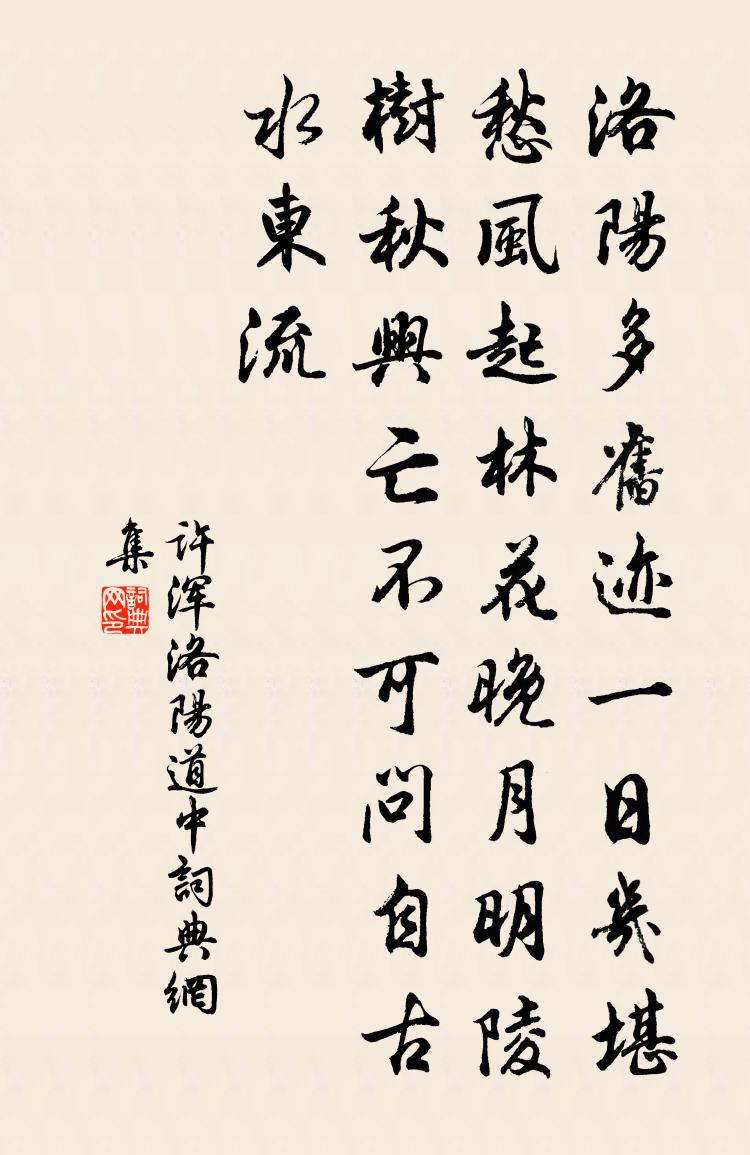 洛陽多舊迹一日幾堪
愁風起林花晚月明陵
樹秋興亡不可問自古
水東流
许浑洛陽道中詞典網
集
詞典
网印